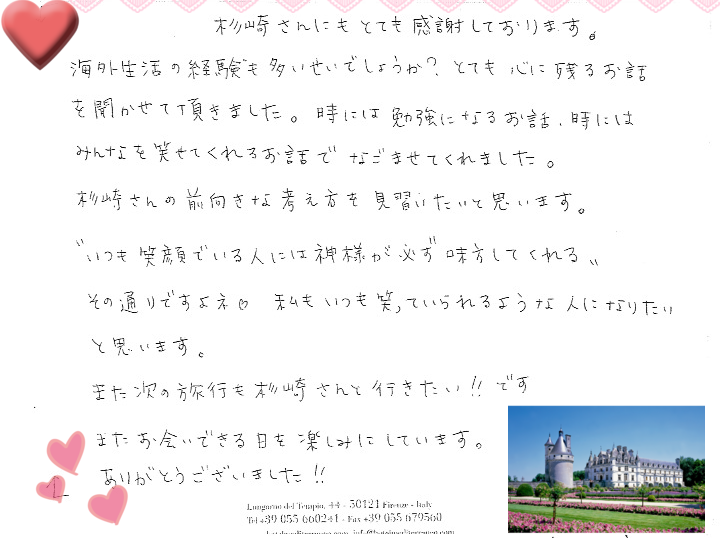 杉崎さんにもとても感謝しております。
海外生活の経験も多いせいでしょうか?、とても心に残るお話
を聞かせて頂きました。時には勉強になるお話、時には
みんなを笑せてくれるお話でなごませてくれました。
杉崎さんの前向きな考え方を見習いたいと思います。
"いつも笑顔でいる人には神様が必ず味方してくれる"
その通りですよネ♡ 私もいつも笑っていられるような人になりたい
と思います。
また次の旅行も杉崎さんと行きたい!!です
またお会いできる日を楽しみにしています。
ありがとうございました!!
Lungarno del Tempio, 44 - 50121 Firenze - Italy
Tel +39 055 660241 - Fax +39 055 679560